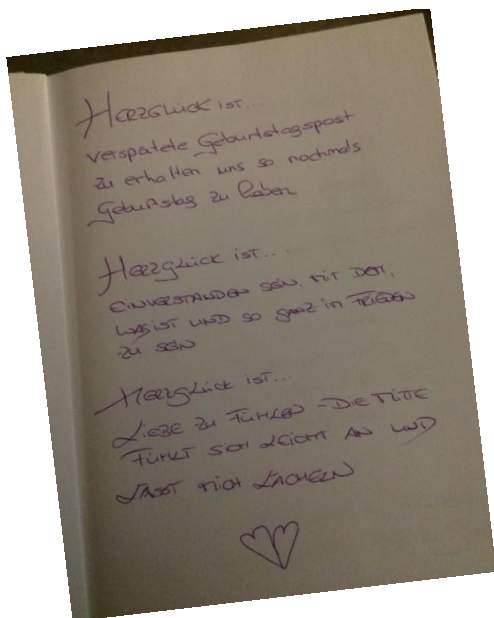 HERZGLÜCK IST...
verspätete Geburtstagspost
zu erhalten uns so nochmals
Geburtstag zu haben
HERZGLÜCK IST...
EINVERSTANDEN SEIN, MIT DEM,
WAS IST UND SO GANZ in FRIEDEN
ZU SEIN
HERZGLÜCK IST...
LIEBE ZU FÜHLEN - DIE MITTE
FÜHLT SICH LEICHT AN UND
LÄSST MICH LÄCHELN